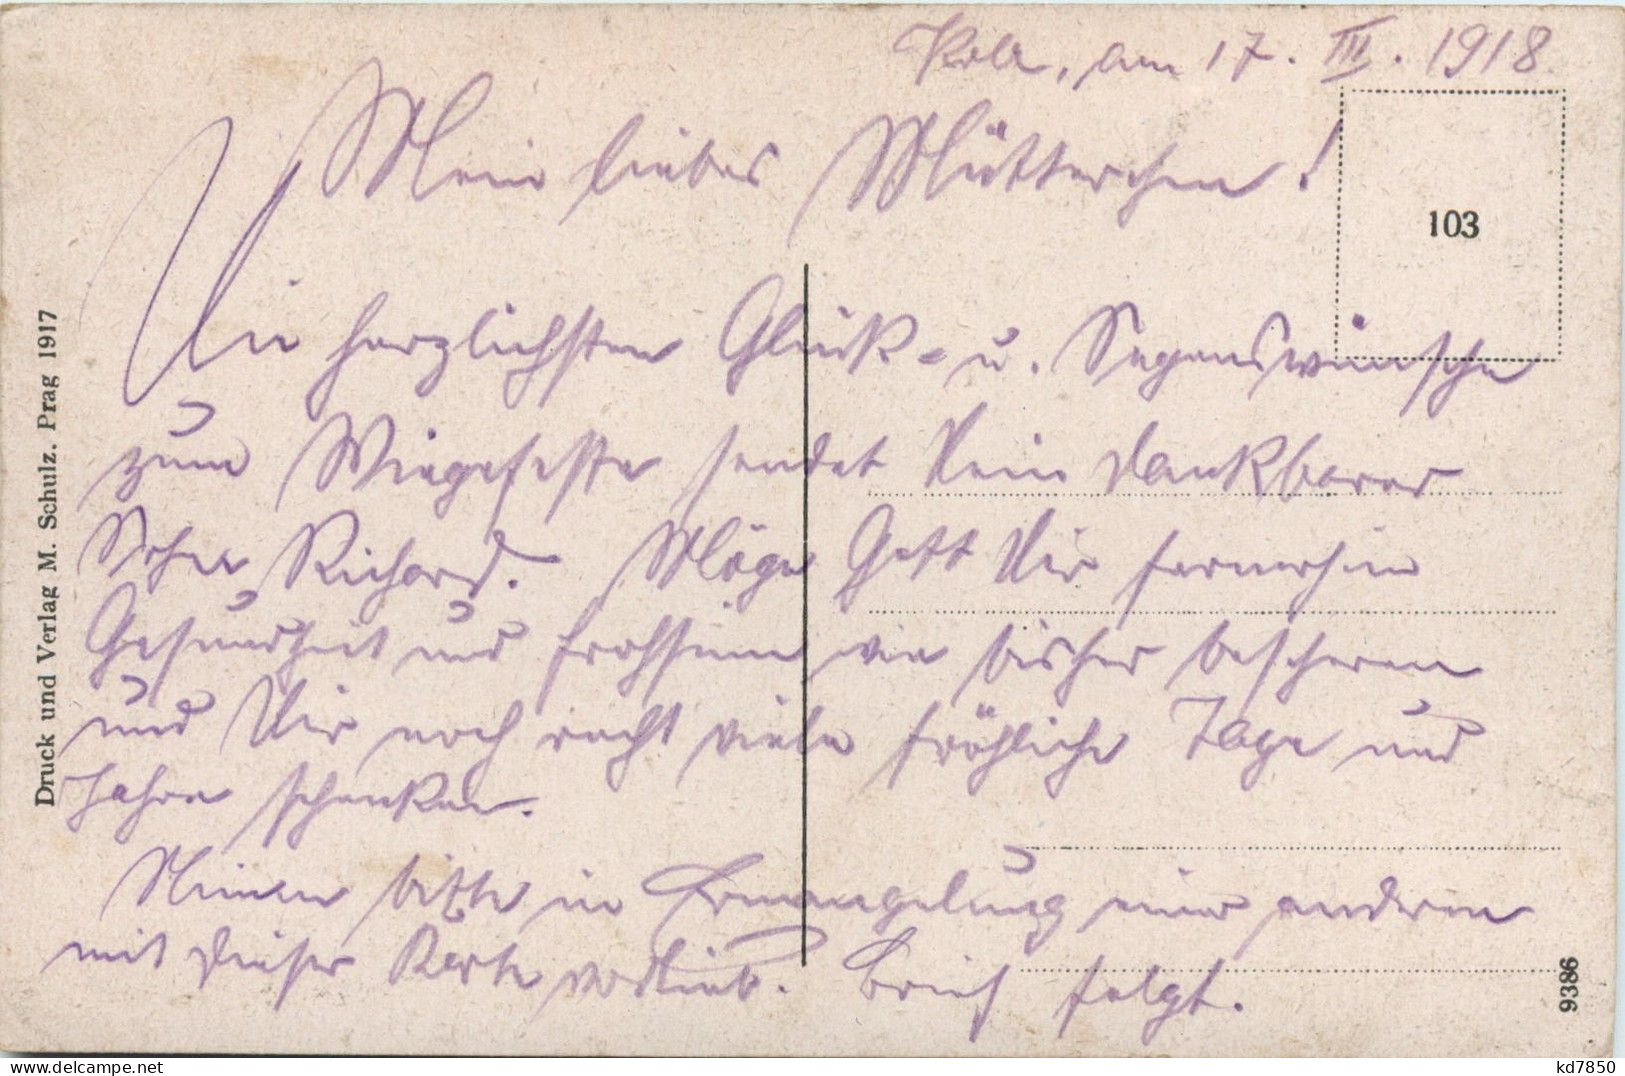 am 17. III. 1918.
Mein liebes Mütterchen!
103
Die herzlichsten Glück- u. Segenswünsche
zum Wiegenfeste sendet Dein dankbarer
Sohn Richard. Möge Gott Dir fernerhin
Gesundheit und Frohsinn wie bisher bescheren
und Dir noch recht viele fröhliche Tage und
Jahre schenken.
Nimm bitte in Ermangelung einer anderen
mit dieser Karte vorlieb. Brief folgt.
Druck und Verlag M. Schulz. Prag 1917
9386
kd7850